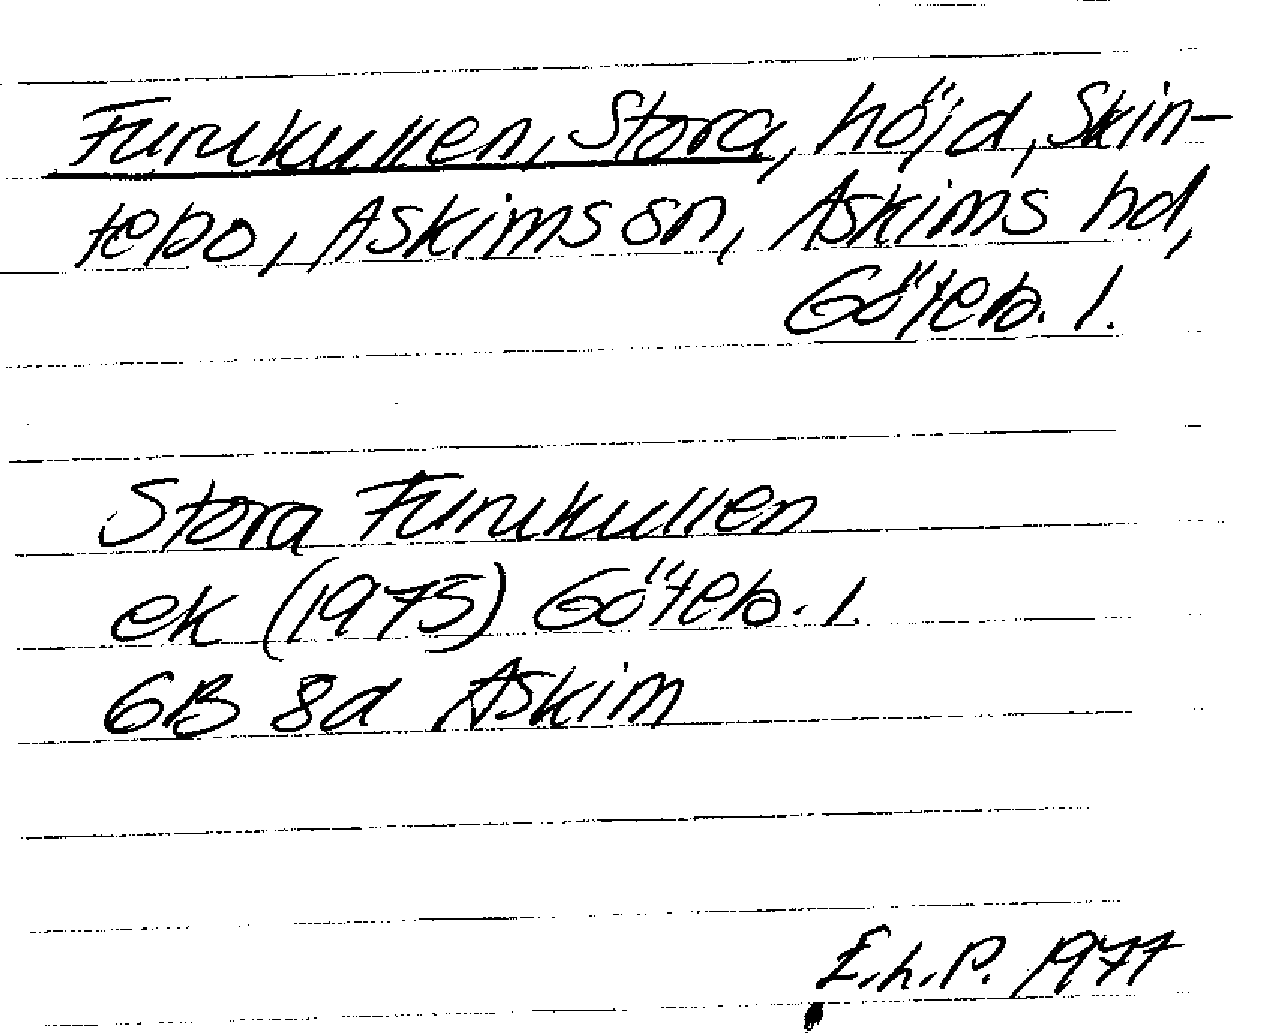 Furukullen, Stora, höjd, Skin-
tebo, Askims sn, Askims hd,
Göteb. l.
Stora Furukullen
ek (1975) Göteb. l.
6B 8d Askim
E.h.P. 1977